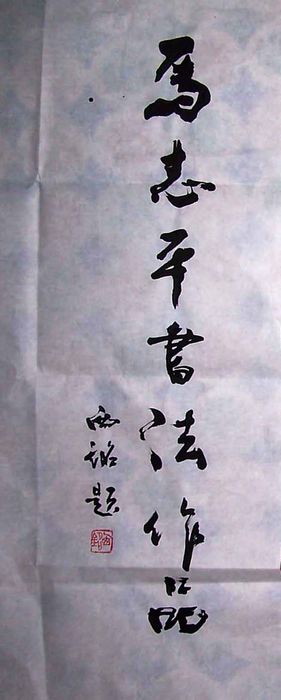 馬志平書法作品
西銘題